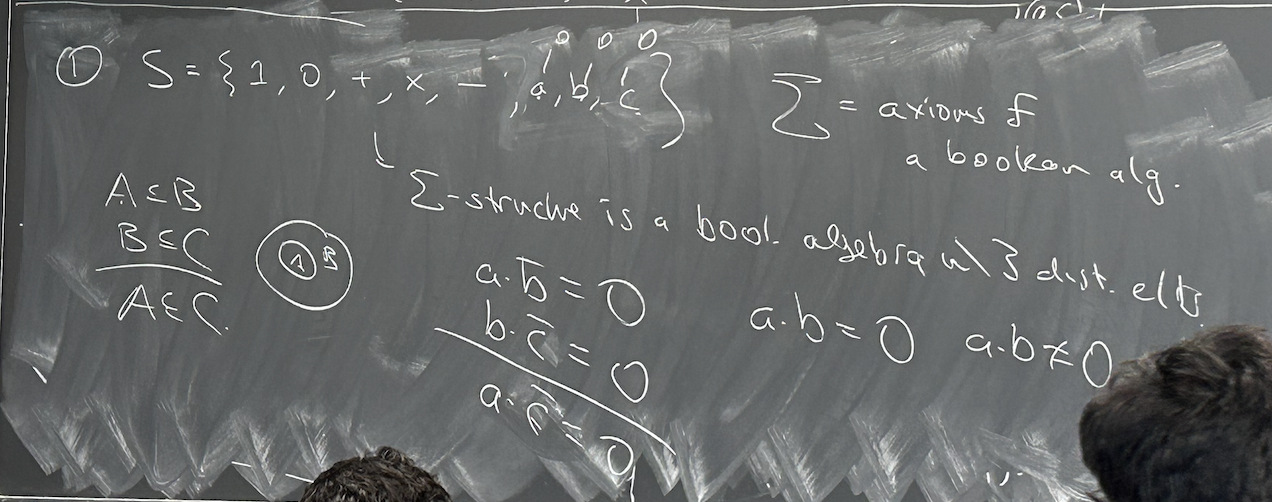 ① S = {1, 0, +, ×, −, a, b, c}
0 0 0
Σ = axioms f
a boolean alg.
Σ-structure is a bool. algebra w\ 3 dist. elts
A ⊆ B
B ⊆ C
A ⊆ C.
A B
a·b̅ = 0
b·c̅ = 0
a·c̅ = 0
a·b = 0 a·b ≠ 0